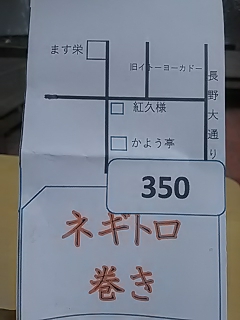 ます栄
旧イトーヨーカドー
長野大通り
紅久様
かよう亭
350
ネギトロ
巻き